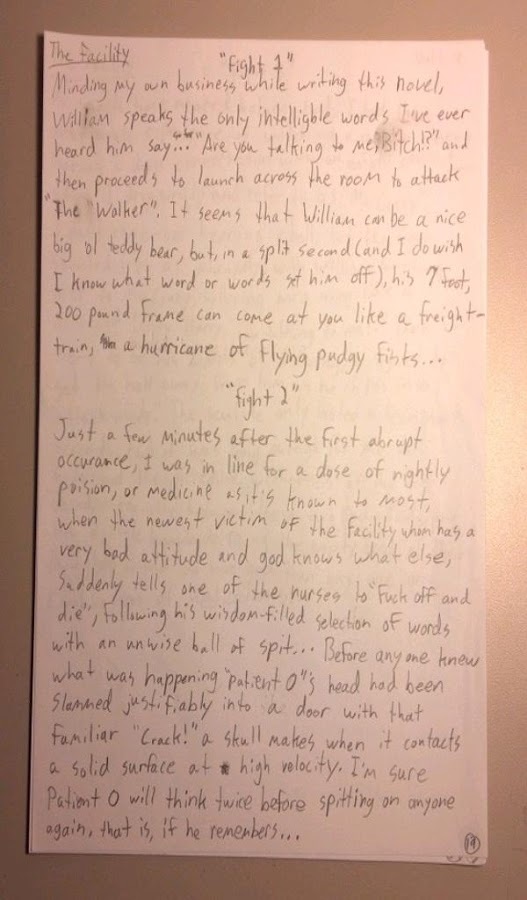 The Facility
"Fight 1"
Minding my own business while writing this novel,
William speaks the only intelligble words I've ever
heard him say "... "Are you talking to me, Bitch!?" and
then proceeds to launch across the room to attack
"The "Walker". It seems that William can be a nice
big ol teddy bear, but, in a split second (and I do wish
I know what word or words set him off), his 7 foot,
200 pound frame can come at you like a freight-
train, a hurricane of flying pudgy fists...
"fight 2"
Just a few minutes after the first abrupt
occurance, I was in line for a dose of nightly
poision, or medicine as it's known to most,
when the newest victim of the Facility whom has a
very bad attitude and god knows what else,
Suddenly tells one of the nurses to "Fuck off and
die", following his wisdom-filled selection of words
with an unwise ball of spit... Before anyone knew
what was happening "patient O"'s head had been
Slammed justifiably into a door with that
familiar "Crack!" a skull makes when it contacts
a solid surface at high velocity. I'm sure
Patient O will think twice before spitting on anyone
again, that is, if he remembers...
19